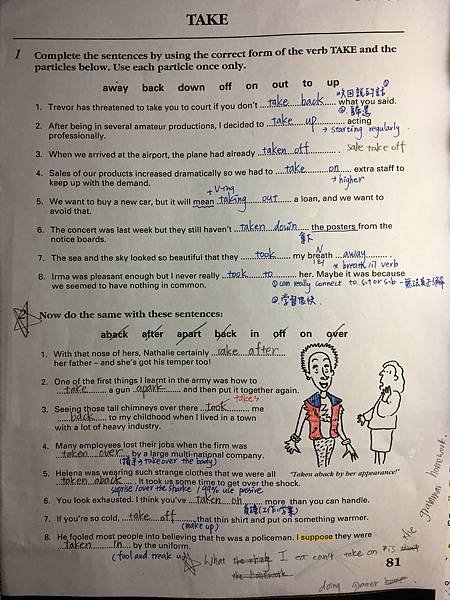 TAKE
1 Complete the sentences by using the correct form of the verb TAKE and the
particles below. Use each particle once only.
away back down off on out to up
收回說的話
1. Trevor has threatened to take you to court if you don't take back what you said.
2. After being in several amateur productions, I decided to take up acting
professionally. → starting regularly
3. When we arrived at the airport, the plane had already taken off. sale take off
4. Sales of our products increased dramatically so we had to take on extra staff to
keep up with the demand. → higher
+ V-ing
5. We want to buy a new car, but it will mean taking out a loan, and we want to
avoid that.
6. The concert was last week but they still haven't taken down the posters from the
notice boards. 拿下
N
7. The sea and the sky looked so beautiful that they took my breath away.
* breath verb
8. Irma was pleasant enough but I never really took to her. Maybe it was because
we seemed to have nothing in common. ① can really connect to st or sb
②
2 Now do the same with these sentences:
aback after apart back in off on over
1. With that nose of hers, Nathalie certainly take after
her father – and she's got his temper too!
2. One of the first things I learnt in the army was how to
take a gun apart and then put it together again.
takes
3. Seeing those tall chimneys over there took me
back to my childhood when I lived in a town
with a lot of heavy industry.
4. Many employees lost their jobs when the firm was
taken over by a large multi-national company.
take over the body)
5. Helena was wearing such strange clothes that we were all
taken aback. It took us some time to get over the shock.
"Taken aback by her appearance!"
/ 99% use passive
6. You look exhausted. I think you've taken on more than you can handle.
7. If you're so cold, take off that thin shirt and put on something warmer.
(make up)
8. He fooled most people into believing that he was a policeman. I suppose they were
taken in by the uniform.
(fool and
What I can't take on is
the grammar homework.
doing
81